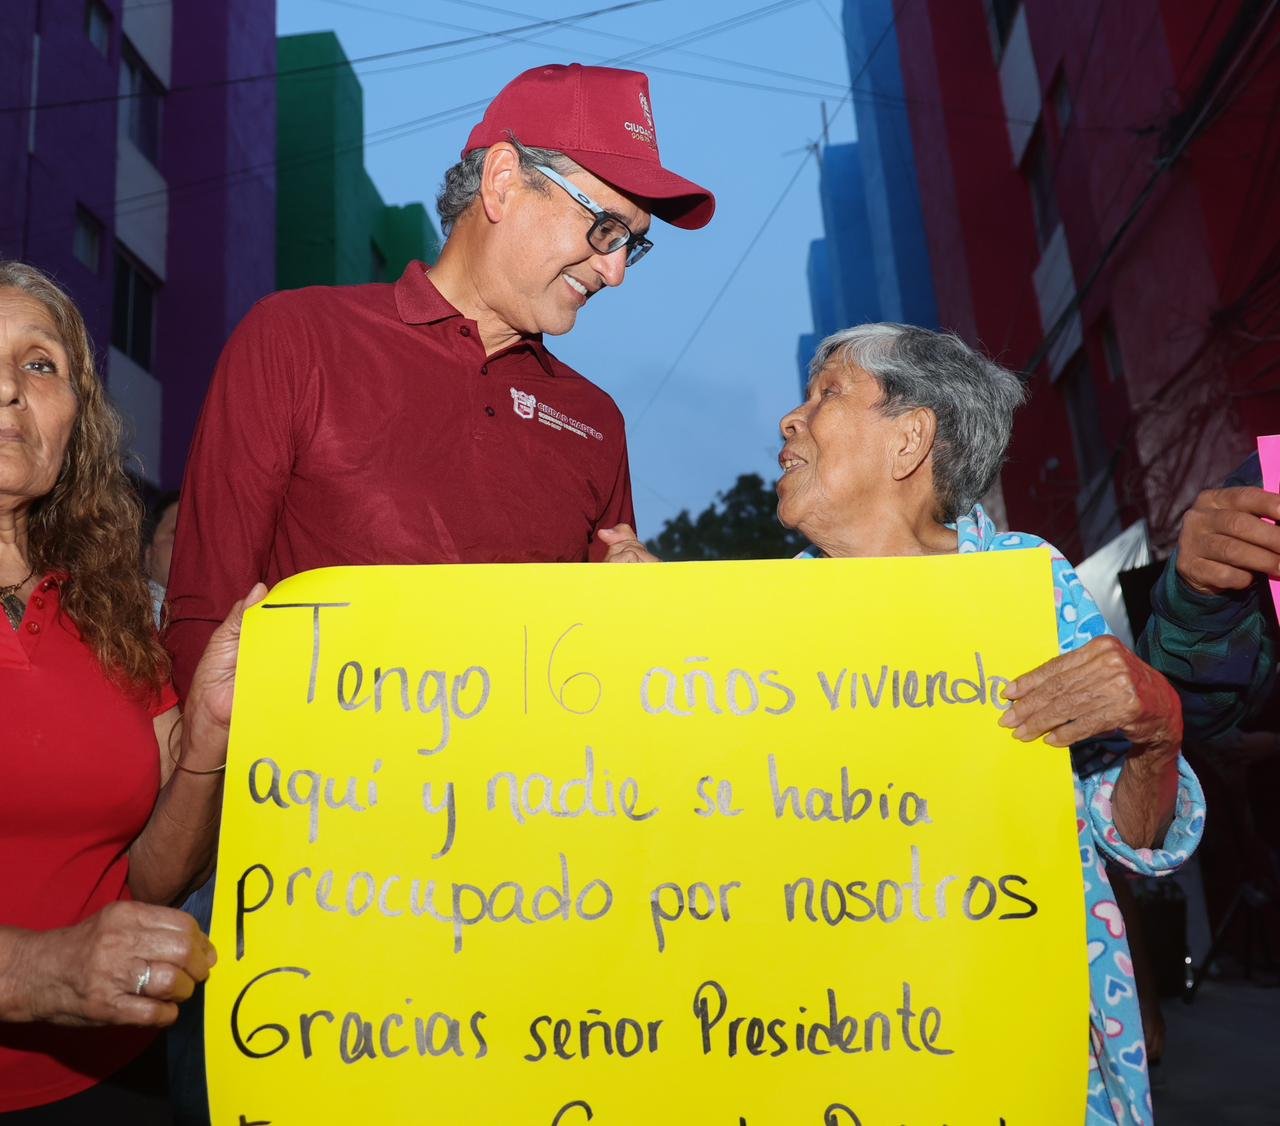 CIUDAD
CIUDAD MADERO
GOBIERNO MUNICIPAL
Tengo 16 años viviendo
aquí y nadie se había
preocupado por nosotros
Gracias señor Presidente